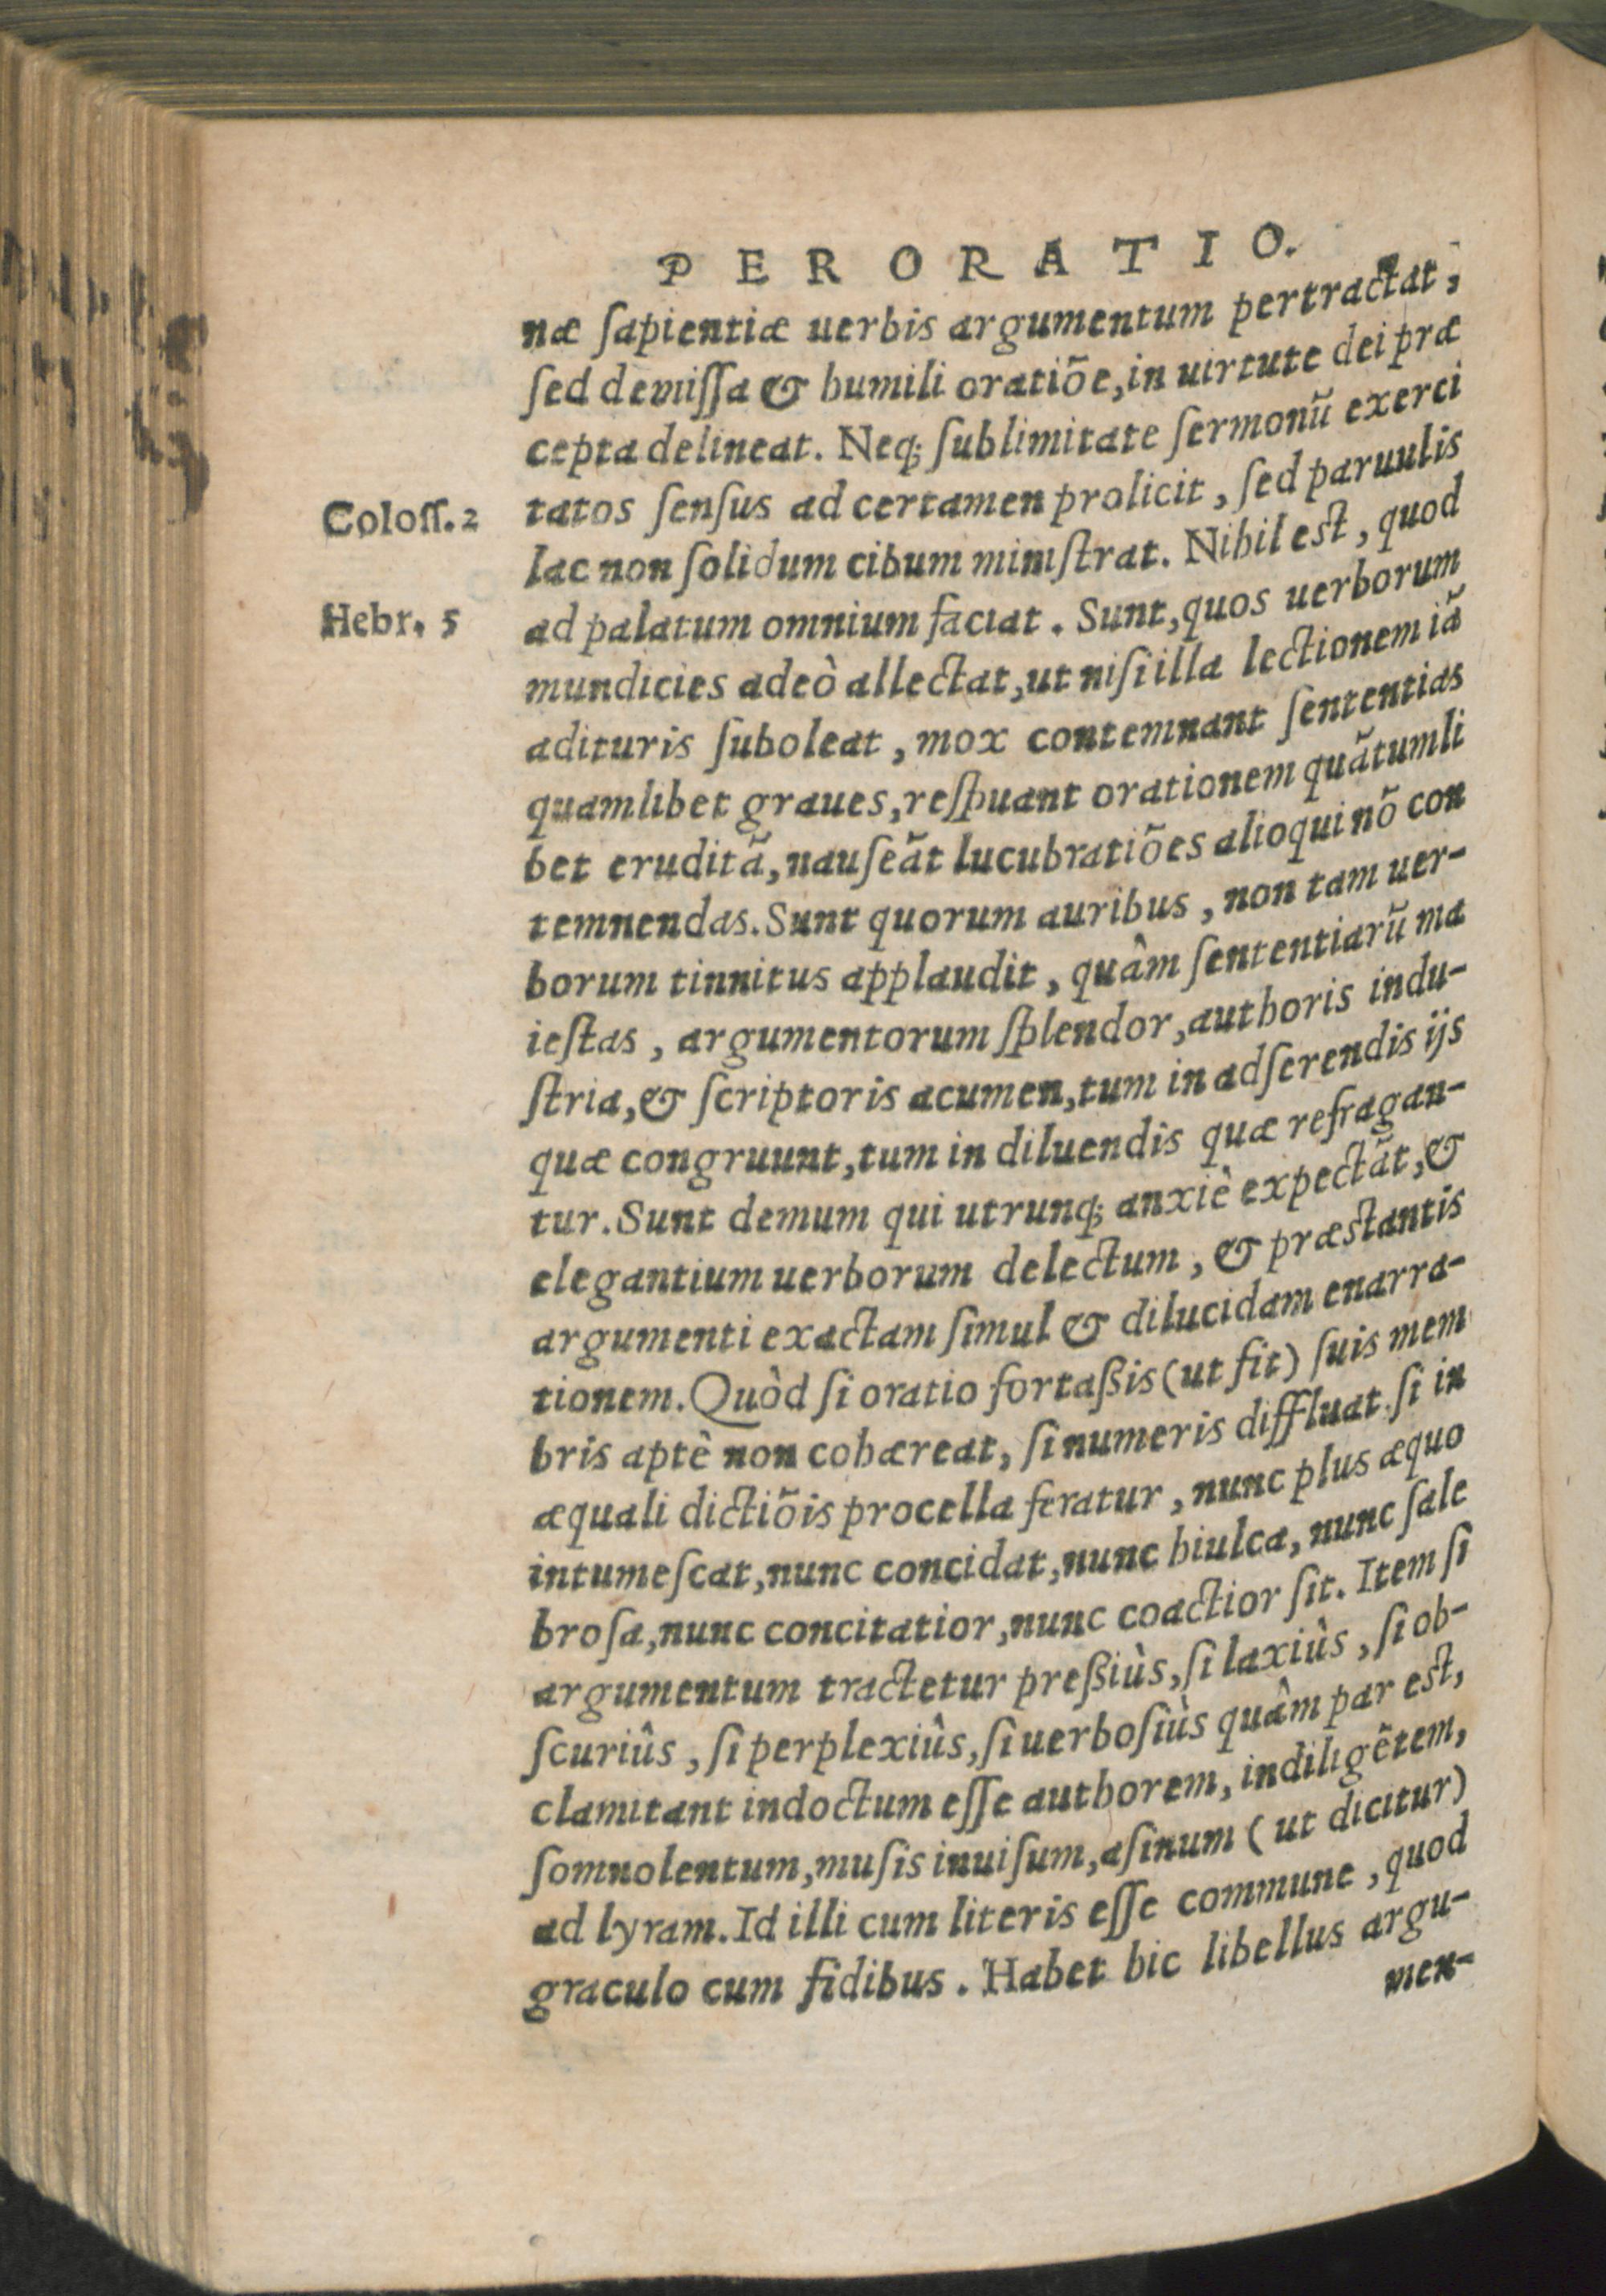 PERORATIO.
næ ſapientiæ uerbis argumentum pertractat,
ſed demiſſa & humili oratiõe, in uirtute dei præ
cepta delineat. Neq; ſublimitate ſermonũ exerci
Coloſſ. 2
tatos ſenſus ad certamen prolicit, ſed paruulis
lac non ſolidum cibum miniſtrat. Nihil eſt, quod
Hebr. 5
ad palatum omnium faciat. Sunt, quos uerborum
mundicies adeò allectat, ut niſi illa lectionem iã
adituris ſuboleat, mox contemnant ſententias
quamlibet graues, reſpuant orationem quãtumli
bet eruditã, nauſeãt lucubratiões alioqui nõ con
temnendas. Sunt quorum auribus, non tam uer-
borum tinnitus applaudit, quâm ſententiarũ ma
ieſtas, argumentorum ſplendor, authoris indu-
ſtria, & ſcriptoris acumen, tum in adſerendis ijs
quæ congruunt, tum in diluendis quæ refragan-
tur. Sunt demum qui utrunq; anxiè expectãt, &
elegantium uerborum delectum, & præſtantis
argumenti exactam ſimul & dilucidam enarra-
tionem. Quòd ſi oratio fortaßis (ut fit) ſuis mem
bris aptè non cohæreat, ſi numeris diffluat. ſi in
æquali dictiõis procella feratur, nunc plus æquo
intumeſcat, nunc concidat, nunc hiulca, nunc ſale
broſa, nunc concitatior, nunc coactior ſit. Item ſi
argumentum tractetur preßiùs, ſi laxiùs, ſi ob-
ſcuriûs, ſi perplexiûs, ſi uerboſiùs quâm par eſt,
clamitant indoctum eſſe authorem, indiligẽtem,
ſomnolentum, muſis inuiſum, aſinum (ut dicitur)
ad lyram. Id illi cum literis eſſe commune, quod
graculo cum fidibus. Habet hic libellus argu-
men-